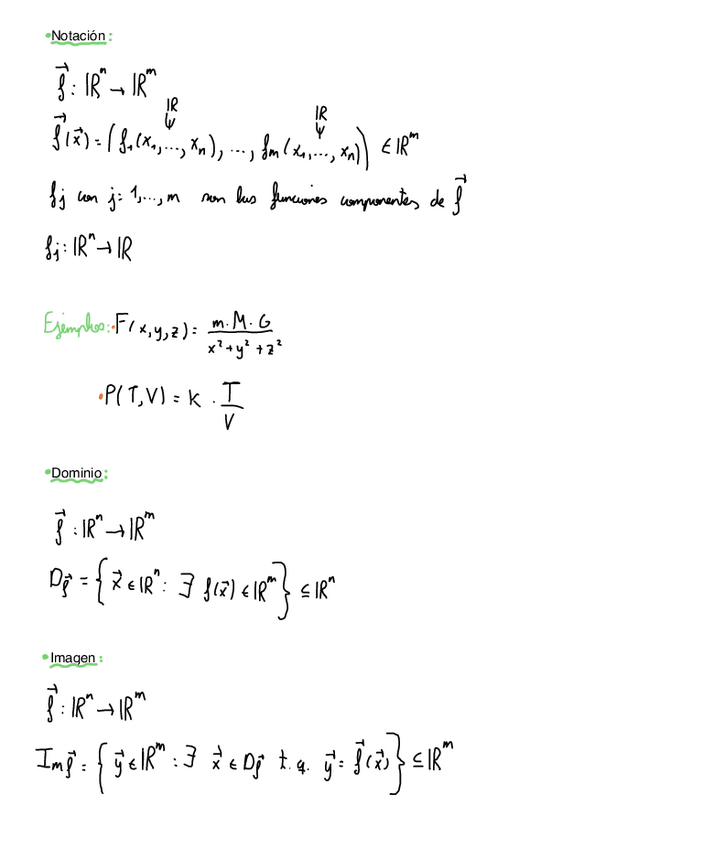 •Notación:
f⃗ : ℝⁿ → ℝᵐ
ℝ ℝ
f⃗(x⃗) = (f₁(x₁,...,xₙ), ..., fₘ(x₁,...,xₙ)) ∈ ℝᵐ
fⱼ con j: 1,...,m son las funciones componentes de f⃗
fⱼ : ℝⁿ → ℝ
Ejemplos: •F(x,y,z) = m.M.G / x²+y²+z²
•P(T,V) = K . T / V
•Dominio:
f⃗ : ℝⁿ → ℝᵐ
Df⃗ = { x⃗ ∈ ℝⁿ : ∃ f(x⃗) ∈ ℝᵐ } ⊆ ℝⁿ
•Imagen:
f⃗ : ℝⁿ → ℝᵐ
Imf⃗ = { y⃗ ∈ ℝᵐ : ∃ x⃗ ∈ Df⃗ t.q. y⃗ = f⃗(x⃗) } ⊆ ℝᵐ